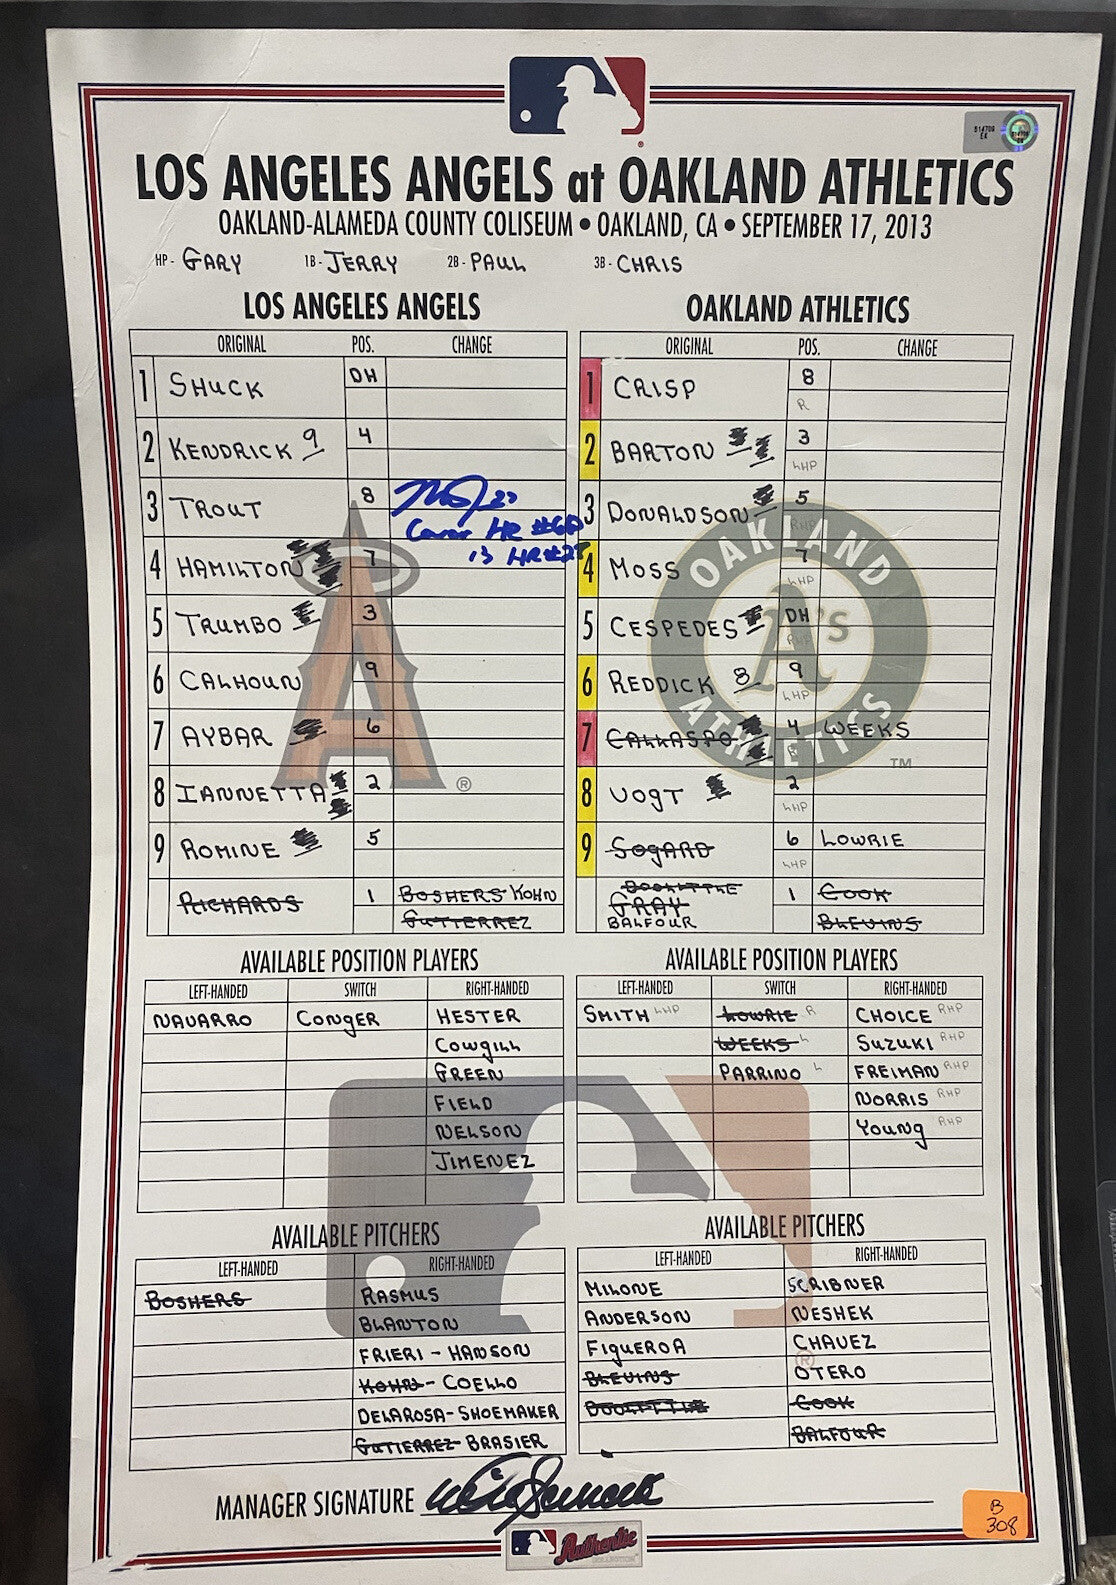 514709
EK
LOS ANGELES ANGELS at OAKLAND ATHLETICS
OAKLAND-ALAMEDA COUNTY COLISEUM • OAKLAND, CA • SEPTEMBER 17, 2013
HP- GARY 1B- JERRY 2B- PAUL 3B- CHRIS
LOS ANGELES ANGELS
ORIGINAL POS. CHANGE
1 SHUCK DH
2 KENDRICK 9 4
3 TROUT 8
27
Career HR #60
13 HR #27
4 HAMILTON 7
5 TRUMBO 3
6 CALHOUN 9
7 AYBAR 6
8 IANNETTA 2
9 ROMINE 5
RICHARDS 1 BOSHERS KOHN
GUTIERREZ
OAKLAND ATHLETICS
ORIGINAL POS. CHANGE
1 CRISP 8
R
2 BARTON 3
LHP
3 DONALDSON 5
RHP
4 MOSS 7
LHP
5 CESPEDES DH
RHP
6 REDDICK 8 9
LHP
7 CALLASPO 4 WEEKS
R
8 VOGT 2
LHP
9 SOGARD 6 LOWRIE
LHP
DOOLITTLE
GRAY 1 COOK
BALFOUR BLEVINS
OAKLAND
A's
ATHLETICS
TM
AVAILABLE POSITION PLAYERS
LEFT-HANDED SWITCH RIGHT-HANDED
NAVARRO CONGER HESTER
COWGILL
GREEN
FIELD
NELSON
JIMENEZ
AVAILABLE POSITION PLAYERS
LEFT-HANDED SWITCH RIGHT-HANDED
SMITH LHP LOWRIE R CHOICE RHP
WEEKS L SUZUKI RHP
PARRINO L FREIMAN RHP
NORRIS RHP
YOUNG RHP
AVAILABLE PITCHERS
LEFT-HANDED RIGHT-HANDED
BOSHERS RASMUS
BLANTON
FRIERI - HANSON
KOHN - COELLO
DELAROSA - SHOEMAKER
GUTIERREZ BRASIER
AVAILABLE PITCHERS
LEFT-HANDED RIGHT-HANDED
MILONE SCRIBNER
ANDERSON NESHEK
FIGUEROA CHAVEZ
BLEVINS OTERO
DOOLITTLE COOK
BALFOUR
MANAGER SIGNATURE
B
308
Authentic
COLLECTION